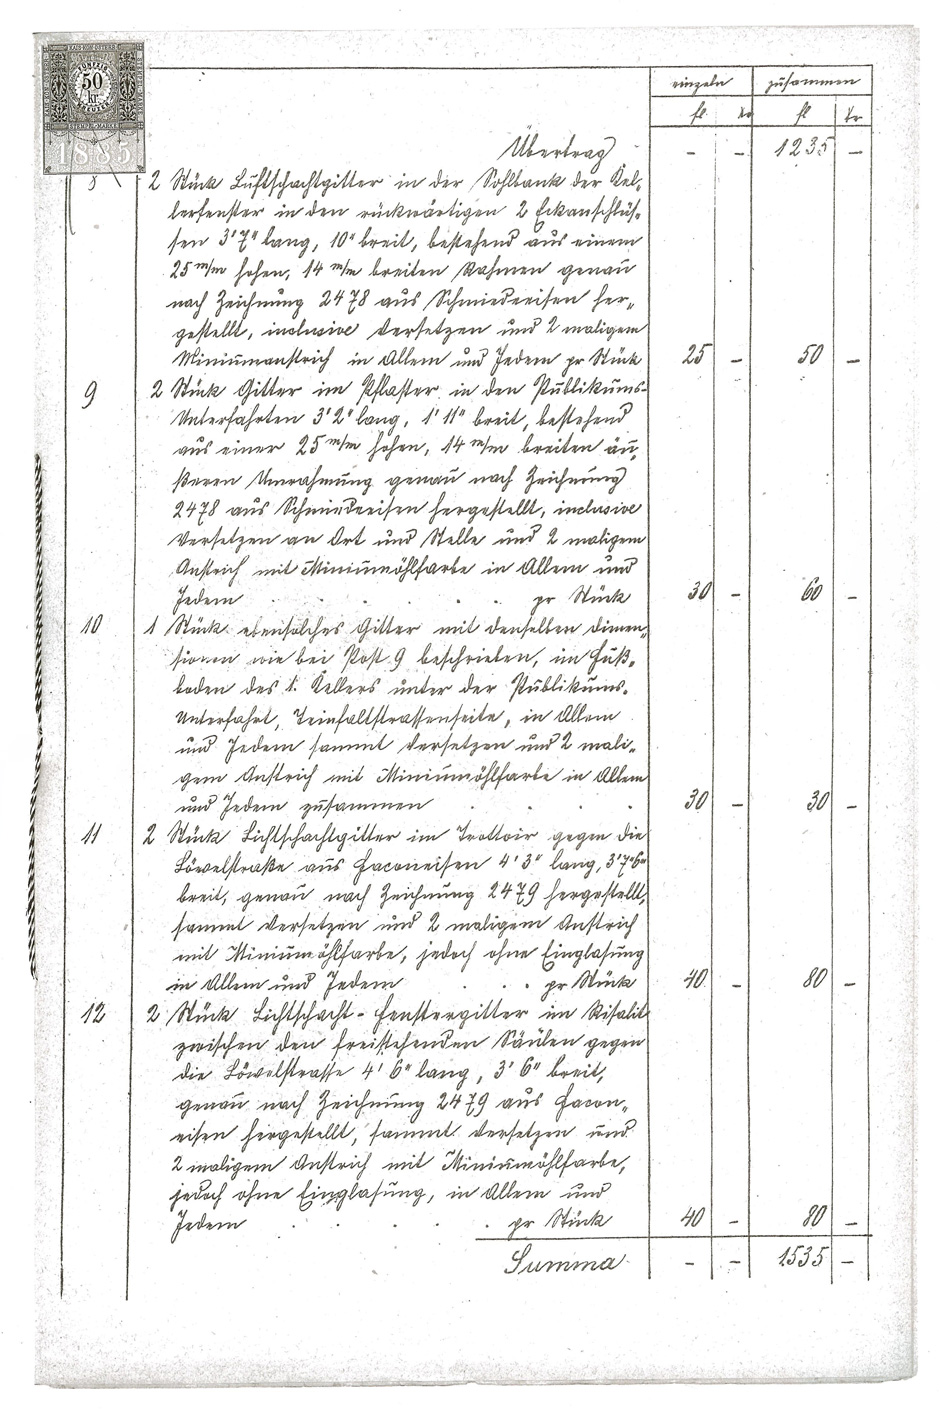 KAIS. KÖN. ÖSTERR.
FÜNFZIG
50
kr.
KREUZER
STEMPEL-MARKE
1885
einzeln zusammen
fl. kr fl kr
Übertrag - - 1235 -
8 2 Stück Luftschachtgitter in der Sohlbank der Kel-
lerfenster in den rückwärtigen 2 Eckanschlüs-
sen 3' 7" lang, 10" breit, bestehend aus einem
25 m/m hohen, 14 m/m breiten Rahmen genau
nach Zeichnung 2478 aus Schmiedeeisen her-
gestellt, inclusive Versetzen und 2 maligem
Miniumanstrich in Allem und Jedem pr Stück 25 - 50 -
9 2 Stück Gitter im Pflaster in den Publikums-
Unterfahrten 3' 2" lang, 1' 11" breit, bestehend
aus einer 25 m/m hohen, 14 m/m breiten äu-
ßeren Umrahmung genau nach Zeichnung
2478 aus Schmiedeeisen hergestellt, inclusive
Versetzen an Ort und Stelle und 2 maligem
Anstrich mit Miniumöhlfarbe in Allem und
Jedem . . . . . pr Stück 30 - 60 -
10 1 Stück ebensolches Gitter mit denselben Dimen-
sionen wie bei Post 9 beschrieben, im Fuß-
boden des 1. Kellers unter der Publikums-
Unterfahrt, Teinfaltstrassenseite, in Allem
und Jedem sammt Versetzen und 2 mali-
gem Anstrich mit Miniumöhlfarbe in Allem
und Jedem zusammen . . . . 30 - 30 -
11 2 Stück Lichtschachtgitter im Trottoir gegen die
Löwelstraße aus Faconeisen 4' 3" lang, 3' 7" 6'''
breit, genau nach Zeichnung 2479 hergestellt,
sammt Versetzen und 2 maligem Anstrich
mit Miniumöhlfarbe, jedoch ohne Einglasung
in Allem und Jedem . . . pr Stück 40 - 80 -
12 2 Stück Lichtschacht-Fenstergitter im Risalit
zwischen den freistehenden Säulen gegen
die Löwelstrasse 4' 6" lang, 3' 6" breit,
genau nach Zeichnung 2479 aus Facon-
eisen hergestellt, sammt Versetzen und
2 maligem Anstrich mit Miniumöhlfarbe,
jedoch ohne Einglasung, in Allem und
Jedem . . . . . pr Stück 40 - 80 -
Summa - - 1535 -